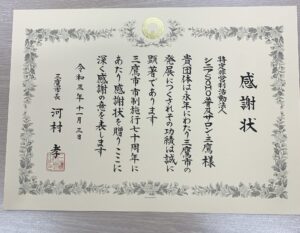 感謝状
特定非営利活動法人
シニアSOHO普及サロン・三鷹 様
貴団体は永年にわたり三鷹市の
発展につくされその功績は誠に
顕著であります
三鷹市市制施行七十周年に
あたり感謝状を贈りここに
深く感謝の意を表します
令和三年十一月三日
三鷹市長 河村 孝